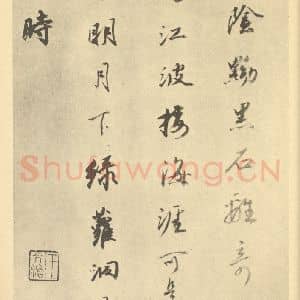 陰黝黑石離奇
江波接海涯可
明月下綠蘿洞
時
Shufawang.CN